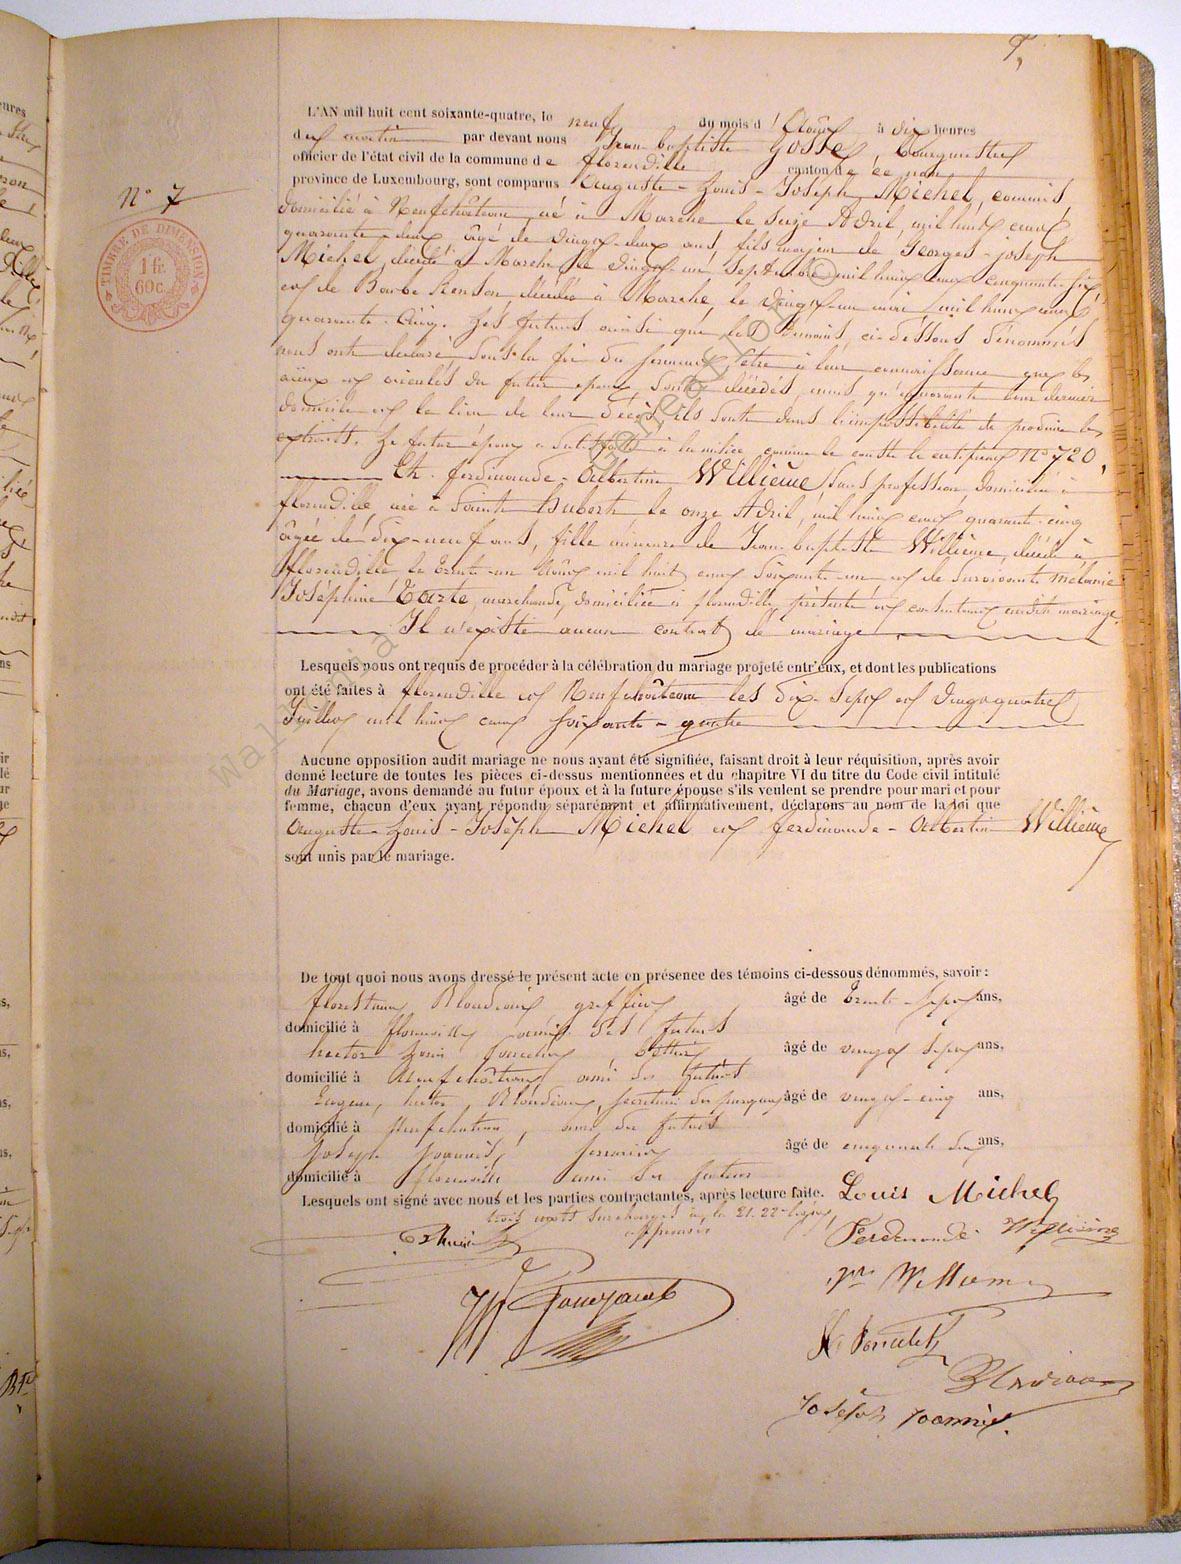 N° 7
TIMBRE DE DIMENSION
1 fr.
60c.
L'AN mil huit cent soixante-quatre, le neuf du mois d'Août à dix heures
du matin par devant nous Jean baptiste Gosse, bourgmestre
officier de l'état civil de la commune de florenville canton de
province de Luxembourg, sont comparus Auguste-Louis-Joseph Michel, commis,
domicilié à Neufchâteau, né à Marche le seize Avril, mil huit cent
quarante-deux, âgé de vingt-deux ans, fils majeur de Georges-joseph
Michel, décédé à Marche le vingt un Septembre mil huit cent cinquante six,
et de Barbe Renson, décédée à Marche, le vingt-un mai, mil huit cent
quarante-cinq. Les futurs ainsi que les témoins, ci-dessous dénommés
nous ont déclaré sous la foi du serment qu'être à leur connaissance que les
aïeux et aïeules du futur époux sont décédés, mais qu'ignorant leur dernier
domicile et le lieu de leur décès, ils sont dans l'impossibilité de produire les
extraits. Le futur époux a satisfait à la milice comme le constate le certificat N° 720,
Et ferdinande-Albertine Willième, sans profession, domiciliée à
florenville née à Saint hubert le onze Avril, mil huit cent quarante-cinq
âgée de dix-neuf ans, fille mineure de Jean baptiste Willième, décédé à
florenville le trente-un Août mil huit cent soixante-un et de survivante mélanie
Joséphine Tarte, marchande, domiciliée à florenville, présente et consentante audit mariage.
Il n'existe aucun contrat de mariage
Lesquels nous ont requis de procéder à la célébration du mariage projeté entr'eux, et dont les publications
ont été faites à florenville et Neufchâteau les dix-sept et vingt quatre
Juillet mil huit cent soixante-quatre
Aucune opposition audit mariage ne nous ayant été signifiée, faisant droit à leur réquisition, après avoir
donné lecture de toutes les pièces ci-dessus mentionnées et du chapitre VI du titre du Code civil intitulé
du Mariage, avons demandé au futur époux et à la future épouse s'ils veulent se prendre pour mari et pour
femme, chacun d'eux ayant répondu séparément et affirmativement, déclarons au nom de la loi que
Auguste-Louis-Joseph Michel et ferdinande-Albertine Willième
sont unis par le mariage.
De tout quoi nous avons dressé le présent acte en présence des témoins ci-dessous dénommés, savoir:
greffier âgé de trente-sept ans,
domicilié à florenville ami des futurs
hector âgé de vingt sept ans,
domicilié à Neufchâteau ami des futurs
hector, secrétaire du parquet âgé de vingt-cinq ans,
domicilié à Neufchateau, ami des futurs
Joseph Joannès, âgé de cinquante deux ans,
domicilié à florenville ami des futurs
Lesquels ont signé avec nous et les parties contractantes, après lecture faite.
trois mots surchargés à la 21. 22e lignes,
approuvés
Louis Michel
Ferdinande Willième
Joseph Joannès.
Wallonia Genealogy ©